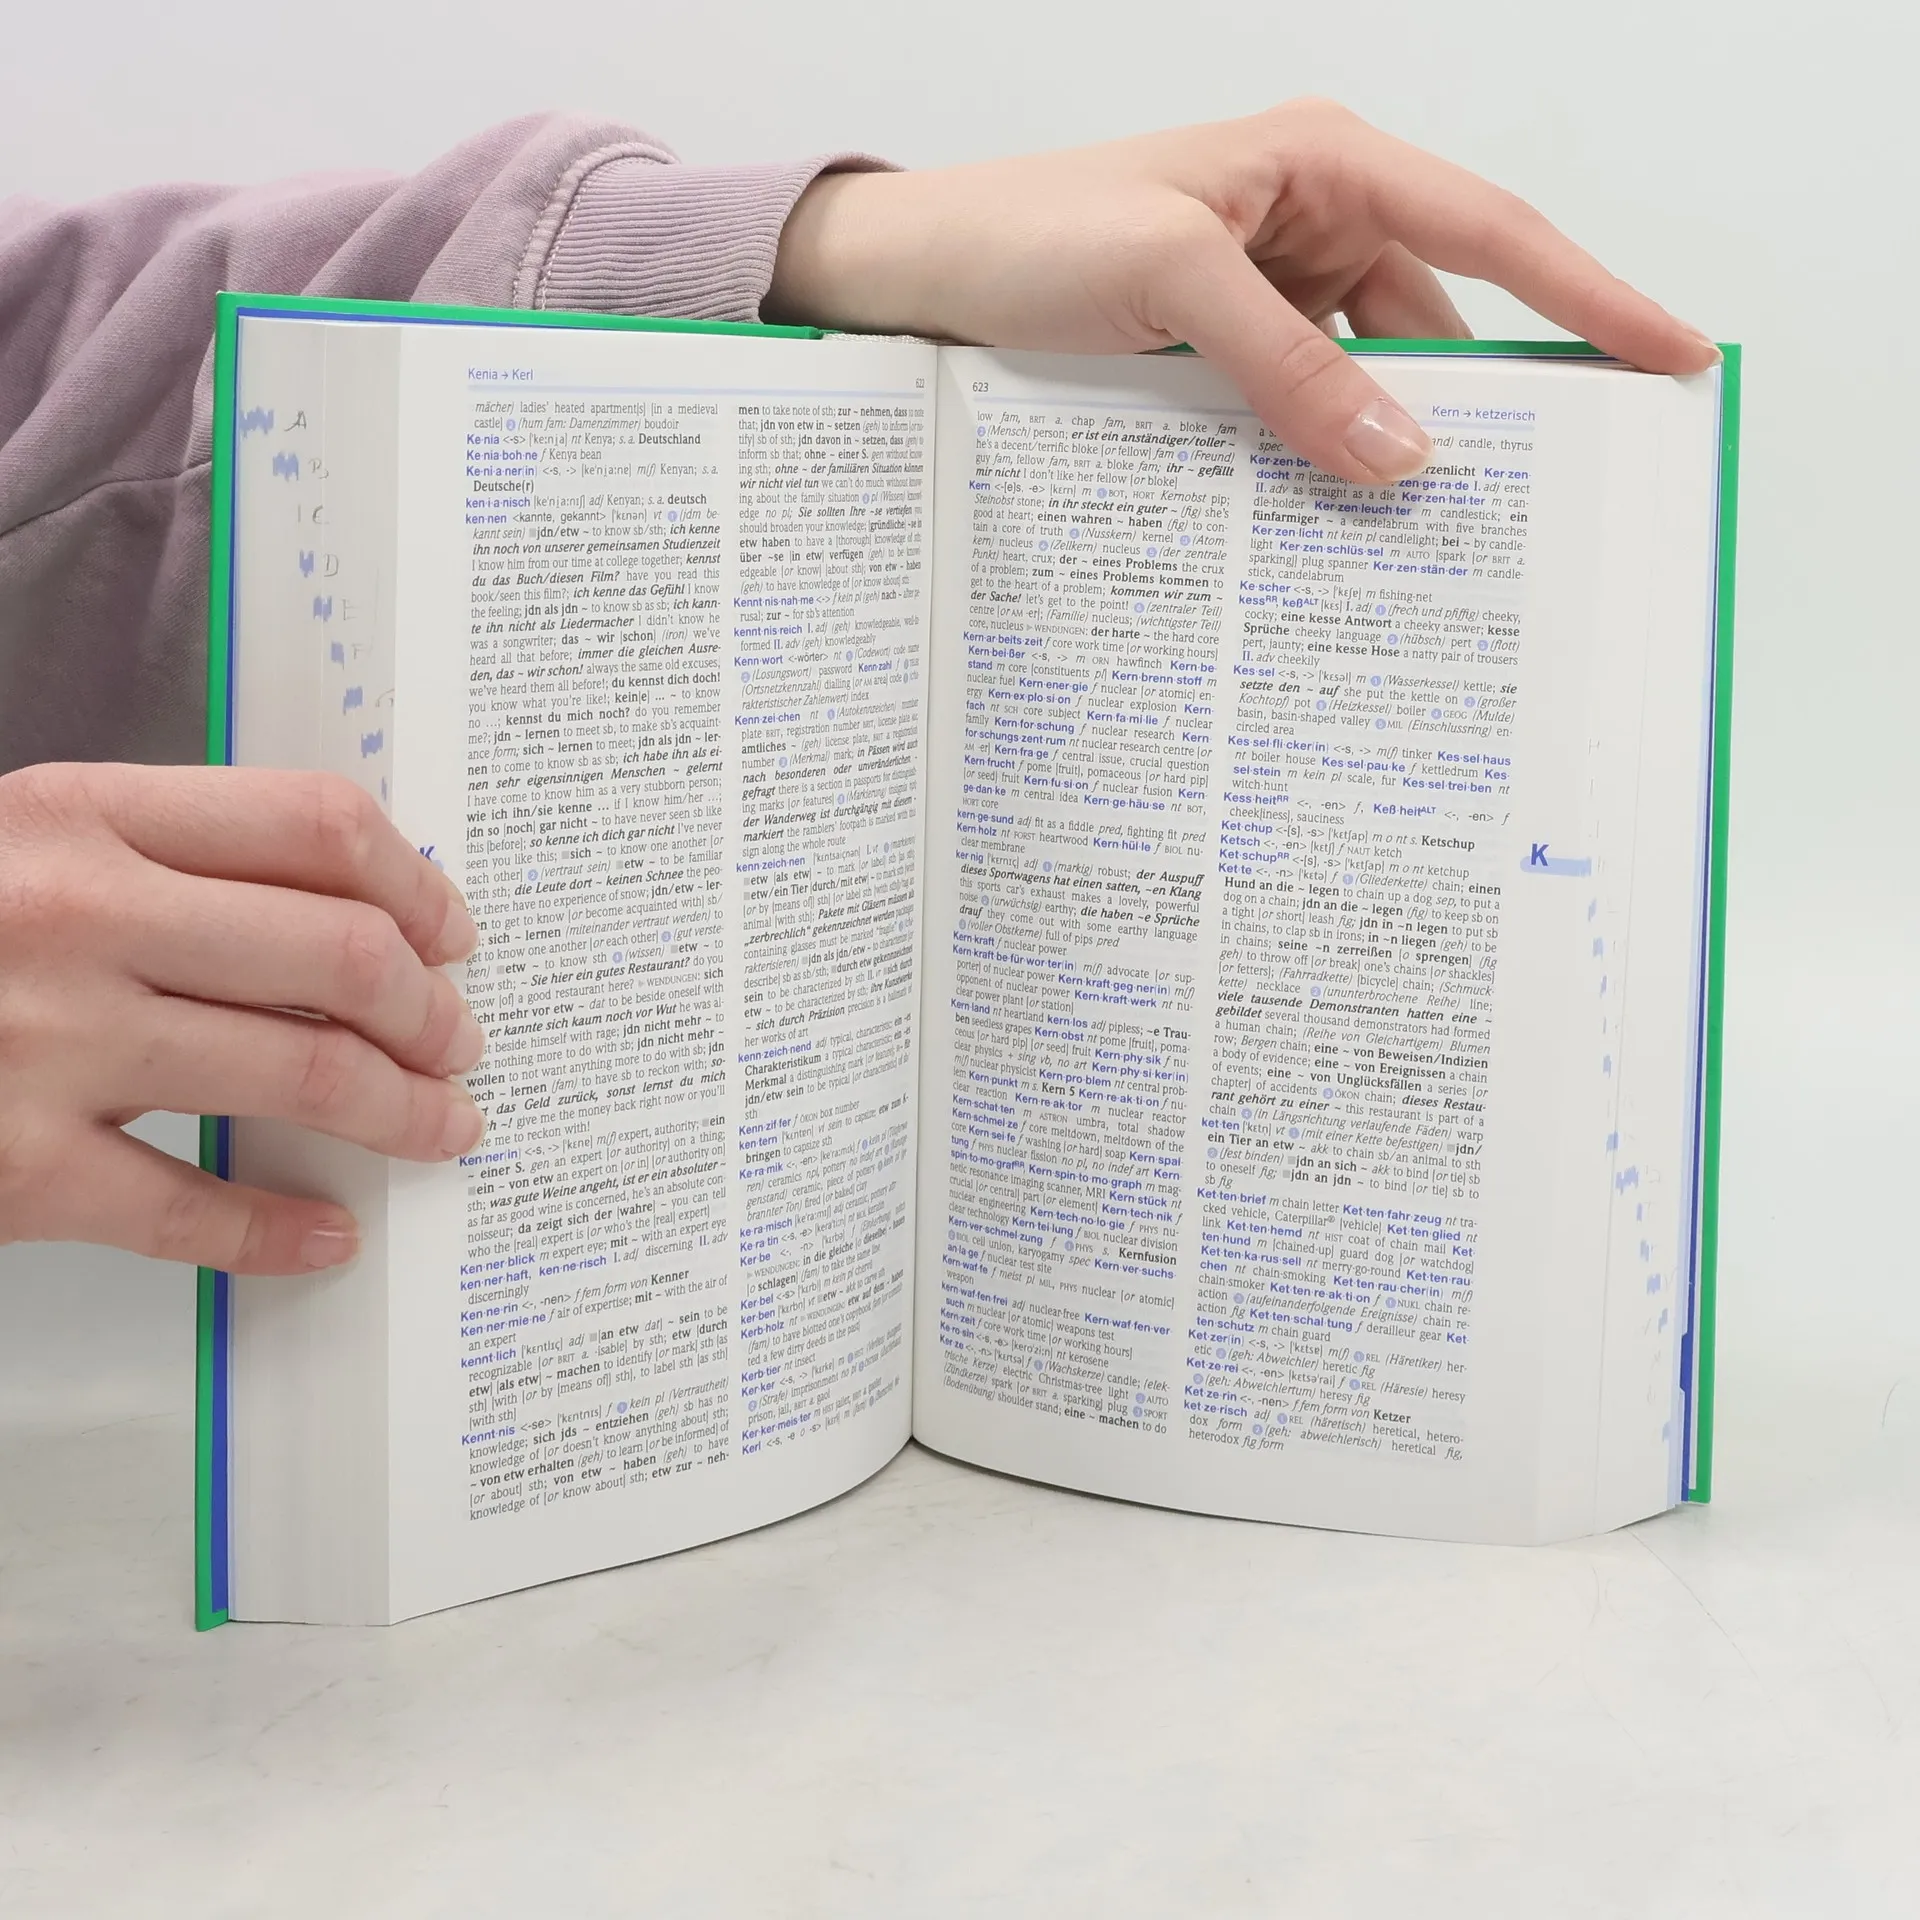 Kenia → Kerl
622
mächer) ladies' heated apartment[s] [in a medieval
castle] ❷ (hum fam: Damenzimmer) boudoir
Ke·nia <-s> [ˈkeːni̯a] nt Kenya; s. a. Deutschland
Ke·nia·boh·ne f Kenya bean
Ke·ni·a·ner(in) <-s, -> [keˈni̯aːnɐ] m(f) Kenyan; s. a.
Deutsche(r)
ken·i·a·nisch [keˈni̯aːnɪʃ] adj Kenyan; s. a. deutsch
ken·nen <kannte, gekannt> [ˈkɛnən] vt ❶ (jdm be-
kannt sein) ■jdn/etw ~ to know sb/sth; ich kenne
ihn noch von unserer gemeinsamen Studienzeit
I know him from our time at college together; kennst
du das Buch/diesen Film? have you read this
book/seen this film?; ich kenne das Gefühl I know
the feeling; jdn als jdn ~ to know sb as sb; ich kann-
te ihn nicht als Liedermacher I didn't know he
was a songwriter; das ~ wir [schon] (iron) we've
heard all that before; immer die gleichen Ausre-
den, das ~ wir schon! always the same old excuses,
we've heard them all before!; du kennst dich doch!
you know what you're like!; kein[e] ... ~ to know
no ...; kennst du mich noch? do you remember
me?; jdn ~ lernen to meet sb, to make sb's acquaint-
ance form; sich ~ lernen to meet; jdn als jdn ~ ler-
nen to come to know sb as sb; ich habe ihn als ei-
nen sehr eigensinnigen Menschen ~ gelernt
I have come to know him as a very stubborn person;
wie ich ihn/sie kenne ... if I know him/her ...;
jdn so [noch] gar nicht ~ to have never seen sb like
this [before]; so kenne ich dich gar nicht I've never
seen you like this; ■sich ~ to know one another [or
each other] ❷ (vertraut sein) ■etw ~ to be familiar
with sth; die Leute dort ~ keinen Schnee the peo-
ple there have no experience of snow; jdn/etw ~ ler-
en to get to know [or become acquainted with] sb/
; sich ~ lernen (miteinander vertraut werden) to
get to know one another [or each other] ❸ (gut verste-
hen) ■etw ~ to know sth ❹ (wissen) ■etw ~ to
know sth; ~ Sie hier ein gutes Restaurant? do you
know [of] a good restaurant here? ▶ WENDUNGEN: sich
cht mehr vor etw ~ dat to be beside oneself with
er kannte sich kaum noch vor Wut he was al-
st beside himself with rage; jdn nicht mehr ~ to
ave nothing more to do with sb; jdn nicht mehr ~
wollen to not want anything more to do with sb; jdn
och ~ lernen (fam) to have sb to reckon with; so-
t das Geld zurück, sonst lernst du mich
ch ~! give me the money back right now or you'll
ve me to reckon with!
Ken·ner(in) <-s, -> [ˈkɛnɐ] m(f) expert, authority; ■ein
~ einer S. gen an expert [or authority] on a thing;
■ein ~ von etw an expert on [or in] [or authority on]
sth; was gute Weine angeht, ist er ein absoluter ~
as far as good wine is concerned, he's an absolute con-
noisseur; da zeigt sich der [wahre] ~ you can tell
who the [real] expert is [or who's the [real] expert]
Ken·ner·blick m expert eye; mit ~ with an expert eye
ken·ner·haft, ken·ne·risch I. adj discerning II. adv
discerningly
Ken·ne·rin <-, -nen> f fem form von Kenner
Ken·ner·mie·ne f air of expertise; mit ~ with the air of
an expert
kennt·lich [ˈkɛntlɪç] adj ■[an etw dat] ~ sein to be
recognizable [or BRIT a. -isable] by sth; etw [durch
etw] [als etw] ~ machen to identify [or mark] sth [as
sth] [with [or by [means of]] sth], to label sth [as sth]
[with sth]
Kennt·nis <-se> [ˈkɛntnɪs] f ❶ kein pl (Vertrautheit)
knowledge; sich jds ~ entziehen (geh) sb has no
knowledge of [or doesn't know anything about] sth;
~ von etw erhalten (geh) to learn [or be informed] of
[or about] sth; von etw ~ haben (geh) to have
knowledge of [or know about] sth; etw zur ~ neh-
men to take note of sth; zur ~ nehmen, dass to note
that; jdn von etw in ~ setzen (geh) to inform [or no-
tify] sb of sth; jdn davon in ~ setzen, dass (geh) to
inform sb that; ohne ~ einer S. gen without know-
ing sth; ohne ~ der familiären Situation können
wir nicht viel tun we can't do much without know-
ing about the family situation ❷ pl (Wissen) knowl-
edge no pl; Sie sollten Ihre ~se vertiefen you
should broaden your knowledge; [gründliche] ~se in
etw haben to have a [thorough] knowledge of sth;
über ~se [in etw] verfügen (geh) to be knowl-
edgeable [or know] [about sth]; von etw ~ haben
(geh) to have knowledge of [or know about] sth
Kennt·nis·nah·me <-> f kein pl (geh) nach ~ after pe-
rusal; zur ~ for sb's attention
kennt·nis·reich I. adj (geh) knowledgeable, well-in-
formed II. adv (geh) knowledgeably
Kenn·wort <-wörter> nt ❶ (Codewort) code name
❷ (Losungswort) password Kenn·zahl f ❶ TELEK
(Ortsnetzkennzahl) dialling [or AM area] code ❷ (cha-
rakteristischer Zahlenwert) index
Kenn·zei·chen nt ❶ (Autokennzeichen) number
plate BRIT, registration number BRIT, license plate AM;
amtliches ~ (geh) license plate, BRIT a. registration
number ❷ (Merkmal) mark; in Pässen wird auch
nach besonderen oder unveränderlichen ~
gefragt there is a section in passports for distinguish-
ing marks [or features] ❸ (Markierung) insignia npl;
der Wanderweg ist durchgängig mit diesem ~
markiert the ramblers' footpath is marked with this
sign along the whole route
kenn·zeich·nen [ˈkɛntsaiçnən] I. vt ❶ (markieren)
■etw [als etw] ~ to mark [or label] sth [as sth];
■etw/ein Tier [durch/mit etw] ~ to mark sth [with
[or by [means of]] sth] [or label sth [with sth]]/tag an
animal [with sth]; Pakete mit Gläsern müssen als
„zerbrechlich" gekennzeichnet werden packages
containing glasses must be marked "fragile" ❷ (cha-
rakterisieren) ■jdn als jdn/etw ~ to characterize [or
describe] sb as sb/sth; ■durch etw gekennzeichnet
sein to be characterized by sth II. vr ■sich durch
etw ~ to be characterized by sth; ihre Kunstwerke
~ sich durch Präzision precision is a hallmark of
her works of art
kenn·zeich·nend adj typical, characteristic; ein ~es
Charakteristikum a typical characteristic; ein ~es
Merkmal a distinguishing mark [or feature]; ■für
jdn/etw sein to be typical [or characteristic] of sb/
sth
Kenn·zif·fer f ÖKON box number
ken·tern [ˈkɛntɐn] vi sein to capsize; etw zum K~
bringen to capsize sth
Ke·ra·mik <-, -en> [keˈraːmɪk] f ❶ kein pl (Töpferwa-
ren) ceramics npl, pottery no indef art ❷ (Kunstge-
genstand) ceramic, piece of pottery ❸ kein pl (ge-
brannter Ton) fired [or baked] clay
ke·ra·misch [keˈraːmɪʃ] adj ceramic, pottery attr
Ke·ra·tin <-s, -e> [keraˈtiːn] nt keratin
Ker·be <-, -n> [ˈkɛrbə] f
▶ WENDUNGEN: in die gleiche [o dieselbe] ~ hauen
[o schlagen] (fam) to take the same line
Ker·bel <-s> [ˈkɛrbl̩] m kein pl chervil
ker·ben [ˈkɛrbn̩] vt ■etw ~
Kerb·holz nt ▶ WENDUNGEN: etw auf dem ~ haben
(fam) to have blotted one's copybook fam
ted a few dirty deeds in the past]
Kerb·tier nt insect
Ker·ker <-s, -> [ˈkɛrkɐ] m
❷ (Strafe) imprisonment no pl
prison, jail, BRIT a. gaol
Ker·ker·meis·ter m HIST jailer
Kerl <-s, -e o -s> [kɛrl] m
623
Kern → ketzerisch
low fam, BRIT a. chap fam, BRIT a. bloke fam
❷ (Mensch) person; er ist ein anständiger/toller ~
he's a decent/terrific bloke [or fellow] fam ❸ (Freund)
guy fam, fellow fam, BRIT a. bloke fam; ihr ~ gefällt
mir nicht! I don't like her fellow [or bloke]
Kern <-[e]s, -e> [kɛrn] m ❶ BOT, HORT Kernobst pip;
Steinobst stone; in ihr steckt ein guter ~ (fig) she's
good at heart; einen wahren ~ haben (fig) to con-
tain a core of truth ❷ (Nusskern) kernel ❸ (Atom-
kern) nucleus ❹ (Zellkern) nucleus ❺ (der zentrale
Punkt) heart, crux; der ~ eines Problems the crux
of a problem; zum ~ eines Problems kommen to
get to the heart of a problem; kommen wir zum ~
der Sache! let's get to the point! ❻ (zentraler Teil)
centre [or AM -er]; (Familie) nucleus; (wichtigster Teil)
core, nucleus ▶ WENDUNGEN: der harte ~ the hard core
Kern·ar·beits·zeit f core work time [or working hours]
Kern·bei·ßer <-s, -> m ORN hawfinch Kern·be-
stand m core [constituents pl] Kern·brenn·stoff m
nuclear fuel Kern·ener·gie f nuclear [or atomic] en-
ergy Kern·ex·plo·si·on f nuclear explosion Kern-
fach nt SCH core subject Kern·fa·mi·lie f nuclear
family Kern·for·schung f nuclear research Kern-
for·schungs·zent·rum nt nuclear research centre [or
AM -er] Kern·fra·ge f central issue, crucial question
Kern·frucht f pome [fruit], pomaceous [or hard pip]
[or seed] fruit Kern·fu·si·on f nuclear fusion Kern-
ge·dan·ke m central idea Kern·ge·häu·se nt BOT,
HORT core
kern·ge·sund adj fit as a fiddle pred, fighting fit pred
Kern·holz nt FORST heartwood Kern·hül·le f BIOL nu-
clear membrane
ker·nig [ˈkɛrnɪç] adj ❶ (markig) robust; der Auspuff
dieses Sportwagens hat einen satten, ~en Klang
this sports car's exhaust makes a lovely, powerful
noise ❷ (urwüchsig) earthy; die haben ~e Sprüche
drauf they come out with some earthy language
❸ (voller Obstkerne) full of pips pred
Kern·kraft f nuclear power
Kern·kraft·be·für·wor·ter(in) m(f) advocate [or sup-
porter] of nuclear power Kern·kraft·geg·ner(in) m(f)
opponent of nuclear power Kern·kraft·werk nt nu-
clear power plant [or station]
Kern·land nt heartland kern·los adj pipless; ~e Trau-
ben seedless grapes Kern·obst nt pome [fruit], poma-
ceous [or hard pip] [or seed] fruit Kern·phy·sik f nu-
clear physics + sing vb, no art Kern·phy·si·ker(in)
m(f) nuclear physicist Kern·pro·blem nt central prob-
lem Kern·punkt m s. Kern 5 Kern·re·ak·ti·on f nu-
clear reaction Kern·re·ak·tor m nuclear reactor
Kern·schat·ten m ASTRON umbra, total shadow
Kern·schmel·ze f core meltdown, meltdown of the
core Kern·sei·fe f washing [or hard] soap Kern·spal-
tung f PHYS nuclear fission no pl, no indef art Kern-
spin·to·mo·graf^RR, Kern·spin·to·mo·graph m mag-
netic resonance imaging scanner, MRI Kern·stück nt
crucial [or central] part [or element] Kern·tech·nik f
nuclear engineering Kern·tech·no·lo·gie f PHYS nu-
clear technology Kern·tei·lung f BIOL nuclear division
Kern·ver·schmel·zung f ❶ PHYS s. Kernfusion
❷ BIOL cell union, karyogamy spec Kern·ver·suchs-
an·la·ge f nuclear test site
Kern·waf·fe f meist pl MIL, PHYS nuclear [or atomic]
weapon
kern·waf·fen·frei adj nuclear-free Kern·waf·fen·ver-
such m nuclear [or atomic] weapons test
Kern·zeit f core work time [or working hours]
Ke·ro·sin <-s, -e> [keroˈziːn] nt kerosene
Ker·ze <-, -n> [ˈkɛrtsə] f ❶ (Wachskerze) candle; (elek-
trische Kerze) electric Christmas-tree light ❷ AUTO
(Zündkerze) spark [or BRIT a. sparking] plug ❸ SPORT
(Bodenübung) shoulder stand; eine ~ machen to do
a s
and) candle, thyrus
spec
Ker·zen·be
rzenlicht Ker·zen-
docht m [candle]
zen·ge·ra·de I. adj erect
II. adv as straight as a die Ker·zen·hal·ter m can-
dle-holder Ker·zen·leuch·ter m candlestick; ein
fünfarmiger ~ a candelabrum with five branches
Ker·zen·licht nt kein pl candlelight; bei ~ by candle-
light Ker·zen·schlüs·sel m AUTO [spark [or BRIT a.
sparking]] plug spanner Ker·zen·stän·der m candle-
stick, candelabrum
Ke·scher <-s, -> [ˈkɛʃɐ] m fishing-net
kess^RR, keß^ALT [kɛs] I. adj ❶ (frech und pfiffig) cheeky,
cocky; eine kesse Antwort a cheeky answer; kesse
Sprüche cheeky language ❷ (hübsch) pert ❸ (flott)
pert, jaunty; eine kesse Hose a natty pair of trousers
II. adv cheekily
Kes·sel <-s, -> [ˈkɛsl̩] m ❶ (Wasserkessel) kettle; sie
setzte den ~ auf she put the kettle on ❷ (großer
Kochtopf) pot ❸ (Heizkessel) boiler ❹ GEOG (Mulde)
basin, basin-shaped valley ❺ MIL (Einschlussring) en-
circled area
Kes·sel·fli·cker(in) <-s, -> m(f) tinker Kes·sel·haus
nt boiler house Kes·sel·pau·ke f kettledrum Kes-
sel·stein m kein pl scale, fur Kes·sel·trei·ben nt
witch-hunt
Kess·heit^RR <-, -en> f, Keß·heit^ALT <-, -en> f
cheek[iness], sauciness
Ket·chup <-[s], -s> [ˈkɛtʃap] m o nt s. Ketschup
Ketsch <-, -en> [kɛtʃ] f NAUT ketch
Ket·schup^RR <-[s], -s> [ˈkɛtʃap] m o nt ketchup
Ket·te <-, -n> [ˈkɛtə] f ❶ (Gliederkette) chain; einen
Hund an die ~ legen to chain up a dog sep, to put a
dog on a chain; jdn an die ~ legen (fig) to keep sb on
a tight [or short] leash fig; jdn in ~n legen to put sb
in chains, to clap sb in irons; in ~n liegen (geh) to be
in chains; seine ~n zerreißen [o sprengen] (fig
geh) to throw off [or break] one's chains [or shackles]
[or fetters]; (Fahrradkette) [bicycle] chain; (Schmuck-
kette) necklace ❷ (ununterbrochene Reihe) line;
viele tausende Demonstranten hatten eine ~
gebildet several thousand demonstrators had formed
a human chain; (Reihe von Gleichartigem) Blumen
row; Bergen chain; eine ~ von Beweisen/Indizien
a body of evidence; eine ~ von Ereignissen a chain
of events; eine ~ von Unglücksfällen a series [or
chapter] of accidents ❸ ÖKON chain; dieses Restau-
rant gehört zu einer ~ this restaurant is part of a
chain ❹ (in Längsrichtung verlaufende Fäden) warp
ket·ten [ˈkɛtn̩] vt ❶ (mit einer Kette befestigen) ■jdn/
ein Tier an etw ~ akk to chain sb/an animal to sth
❷ (fest binden) ■jdn an sich ~ akk to bind [or tie] sb
to oneself fig; ■jdn an jdn ~ to bind [or tie] sb to
sb fig
Ket·ten·brief m chain letter Ket·ten·fahr·zeug nt tra-
cked vehicle, Caterpillar® [vehicle] Ket·ten·glied nt
link Ket·ten·hemd nt HIST coat of chain mail Ket-
ten·hund m [chained-up] guard dog [or watchdog]
Ket·ten·ka·rus·sell nt merry-go-round Ket·ten·rau-
chen nt chain-smoking Ket·ten·rau·cher(in) m(f)
chain-smoker Ket·ten·re·ak·ti·on f ❶ NUKL chain re-
action ❷ (aufeinanderfolgende Ereignisse) chain re-
action fig Ket·ten·schal·tung f derailleur gear Ket-
ten·schutz m chain guard
Ket·zer(in) <-s, -> [ˈkɛtsɐ] m(f) ❶ REL (Häretiker) her-
etic ❷ (geh: Abweichler) heretic fig
Ket·ze·rei <-, -en> [kɛtsəˈrai] f ❶ REL (Häresie) heresy
❷ (geh: Abweichlertum) heresy fig
Ket·ze·rin <-, -nen> f fem form von Ketzer
ket·ze·risch adj ❶ REL (häretisch) heretical, hetero-
dox form ❷ (geh: abweichlerisch) heretical fig,
heterodox fig form
K
K
A
B
C
D
E
F
G